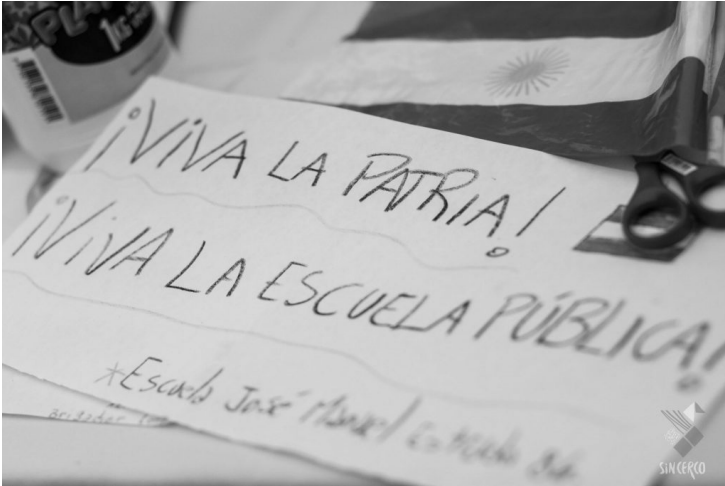 PLA
¡VIVA LA PATRIA!
¡VIVA LA ESCUELA PÚBLICA!
*Escuela José Manuel Estrada
SINCERCO